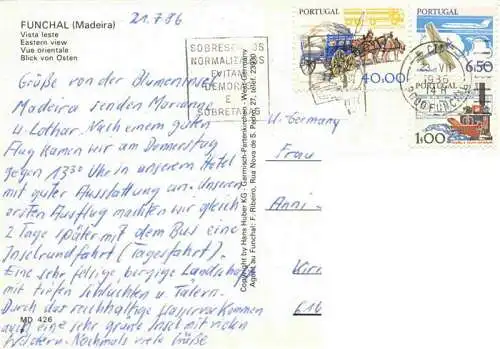 FUNCHAL (Madeira)
Vista leste
Eastern view
Vue orientale
Blick von Osten
21.7.86
Grüße von der Blumeninsel
Madeira senden Marianne
u. Lothar. Nach einem guten
Flug kamen wir am Donnerstag
gegen 13 30 Uhr in unserem Hotel
mit guter Ausstattung an. Unseren
ersten Ausflug machten wir gleich
2 Tage später mit dem Bus eine
Inselrundfahrt (Tagesfahrt).
Eine sehr felsige bergige Landschaft
mit tiefen Schluchten u. Tälern.
Durch das reichhaltige Wasservorkommen
auch eine sehr grüne Insel mit vielen
Wäldern. Nochmals viele Grüße
MD 426
Copyright by Hans Huber KG - Garmisch-Partenkirchen - West-Germany
Agent au Funchal: F. Ribeiro, Rua Nova de S. Pedro 27, telef. 23930
SOBRESCRITOS
NORMALIZADOS
EVITAM
DEMORAS
E
SOBRETAXAS
PORTUGAL
40.00
PORTUGAL
6.50
PORTUGAL
1.00
W. Germany
Frau
Anni